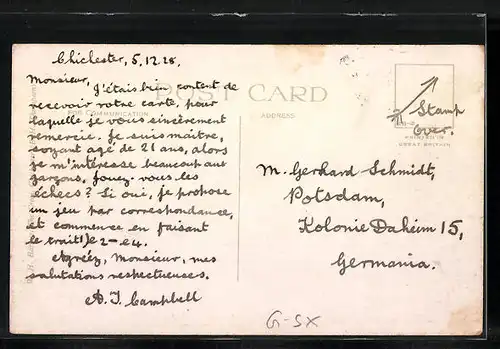 Chichester, 5.12.28.
POST CARD
FOR COMMUNICATION
ADDRESS
Monsieur,
J'étais bien content de
recevoir votre carte, pour
laquelle je vous sincèrement
remercie. Je suis maître,
soyant agé de 21 ans, alors
je m'intéresse beaucoup aux
garçons. Jouez-vous les
échecs? Si oui, je propose
un jeu par correspondance,
et commence en faisant
le trait 1) e2-e4.
Agréez, Monsieur, mes
salutations respectueuses.
A. J. Campbell
Stamp
Over.
PRINTED IN
GREAT BRITAIN
M. Gerhard Schmidt,
Potsdam,
Kolonie Daheim 15,
Germania.
G-SX